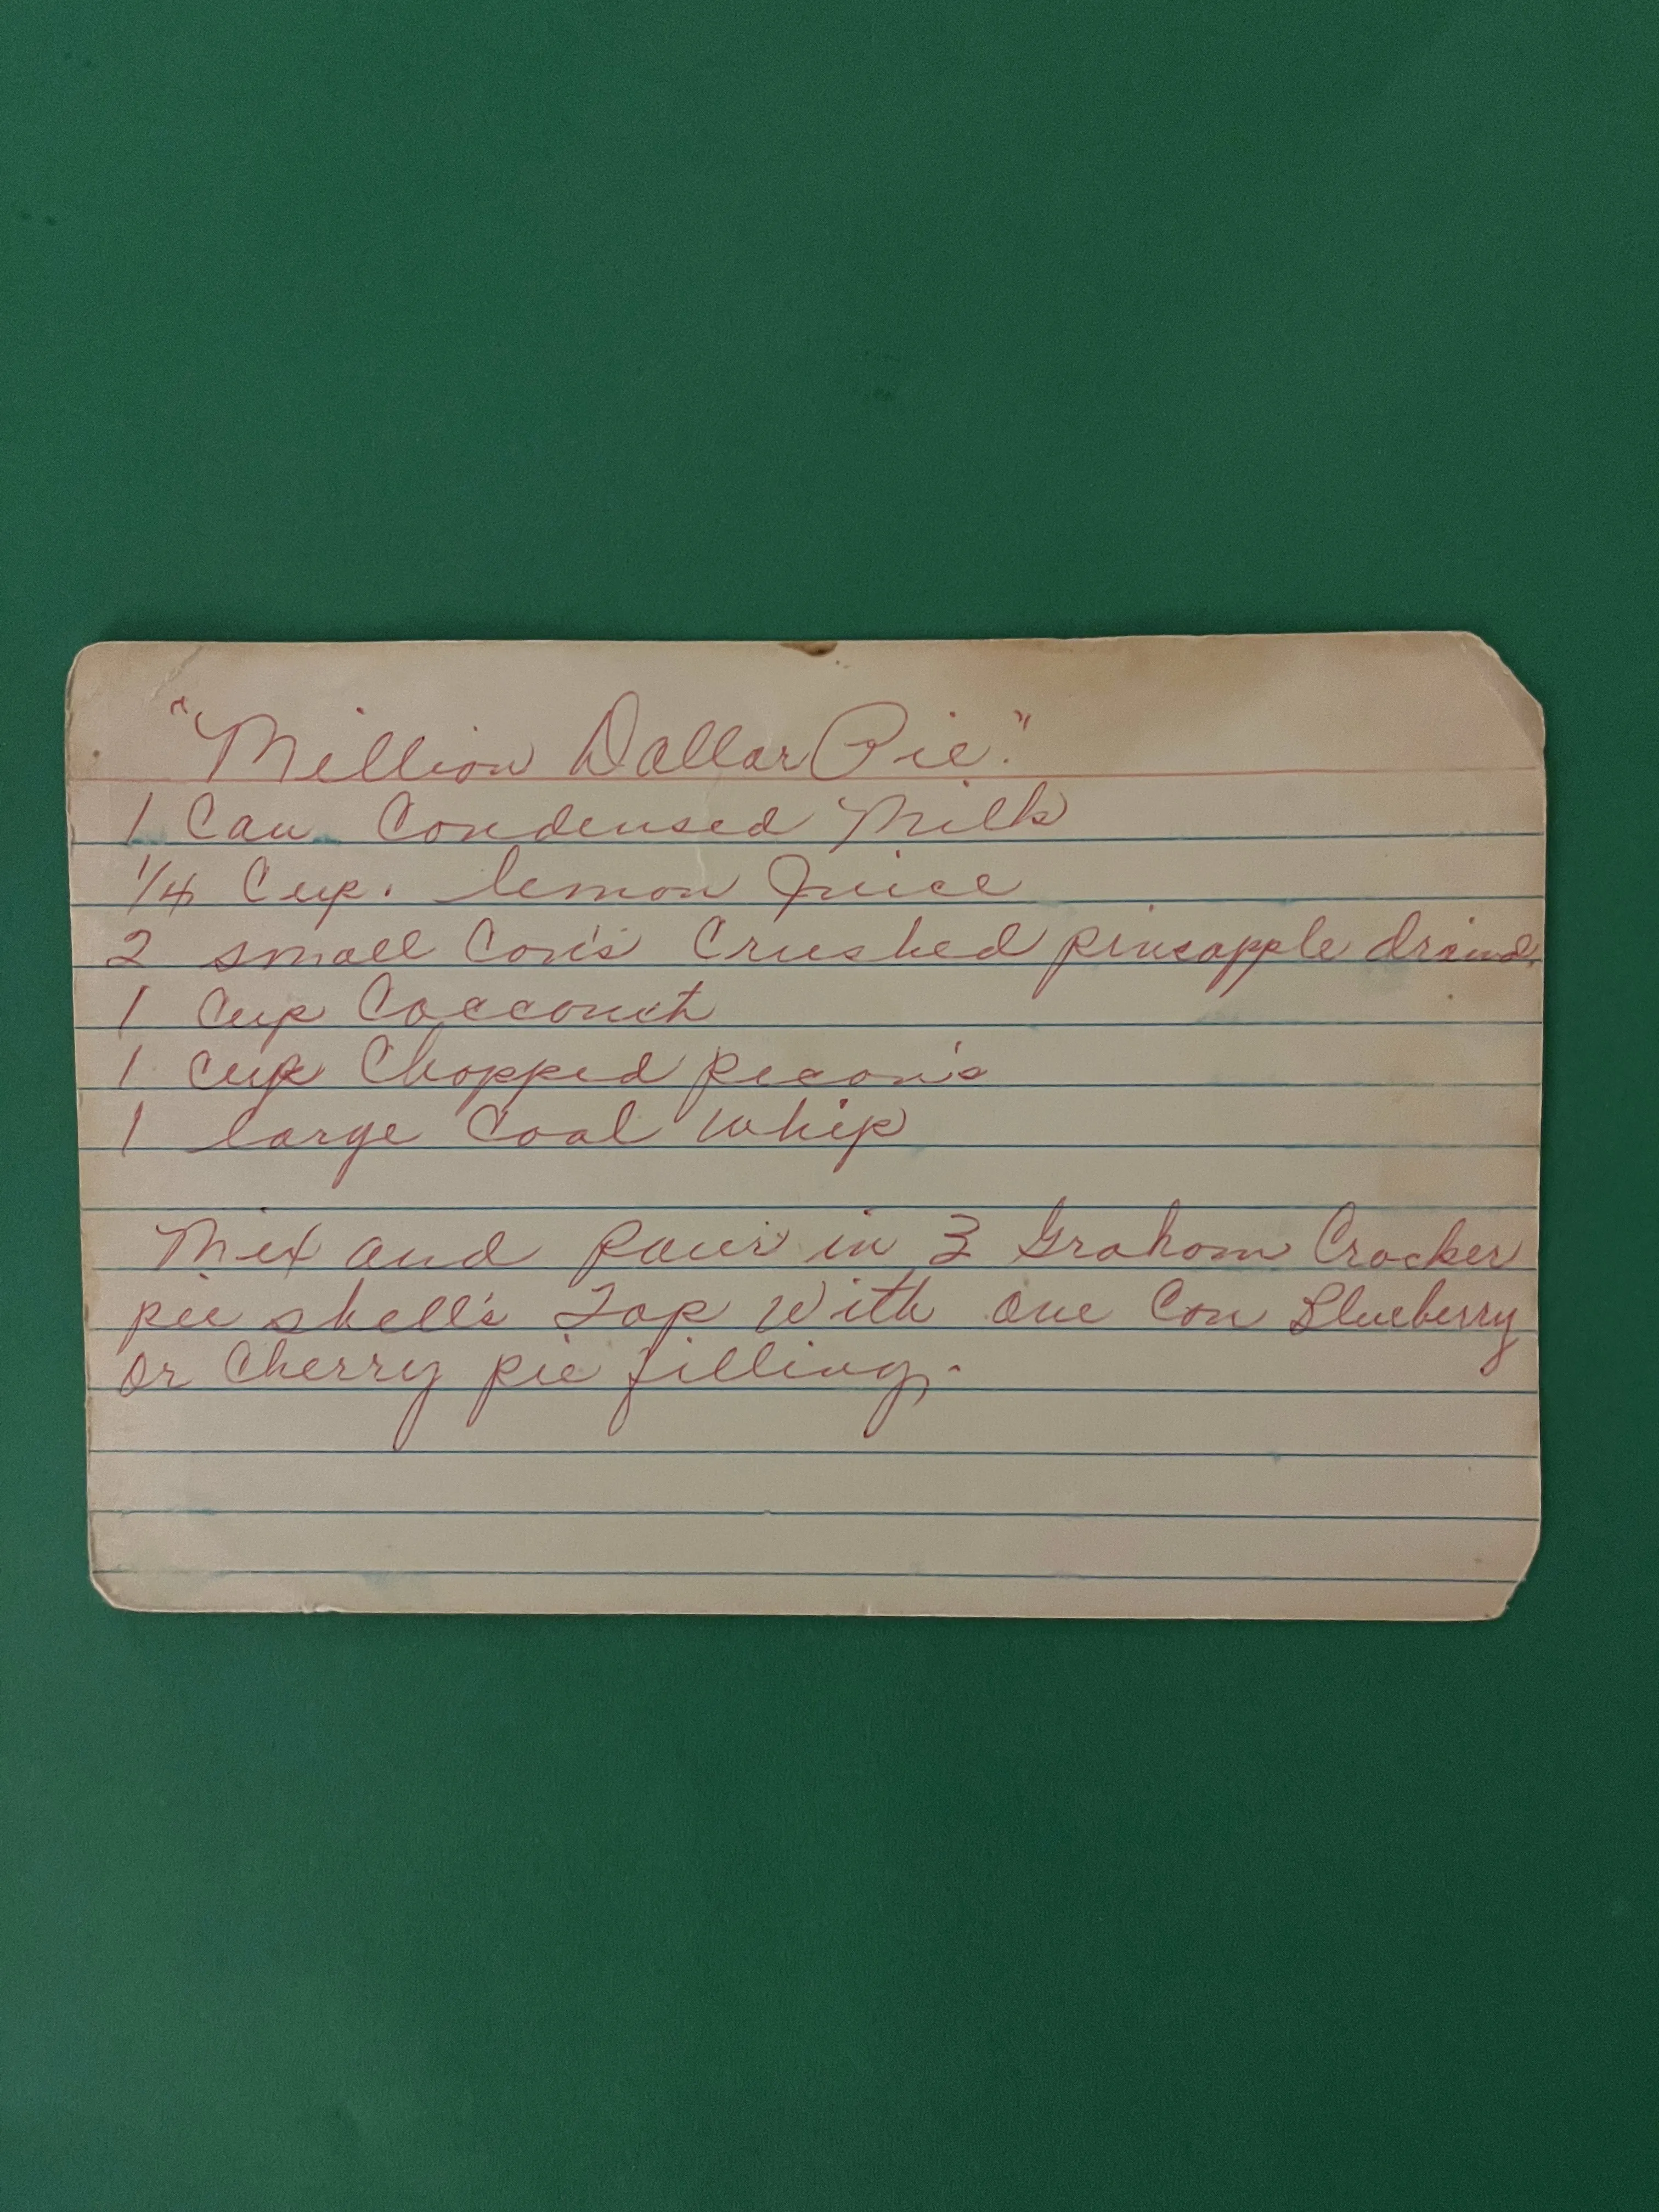 "Million Dollar Pie."
1 Can Condensed Milk
1/4 Cup. lemon Juice
2 small Can's Crushed pineapple draind.
1 Cup Cocconut
1 cup Chopped pecan's
1 large Cool Whip
Mix and pour in 3 Graham Cracker
pie shell's Top With one Can Blueberry
or Cherry pie filling.